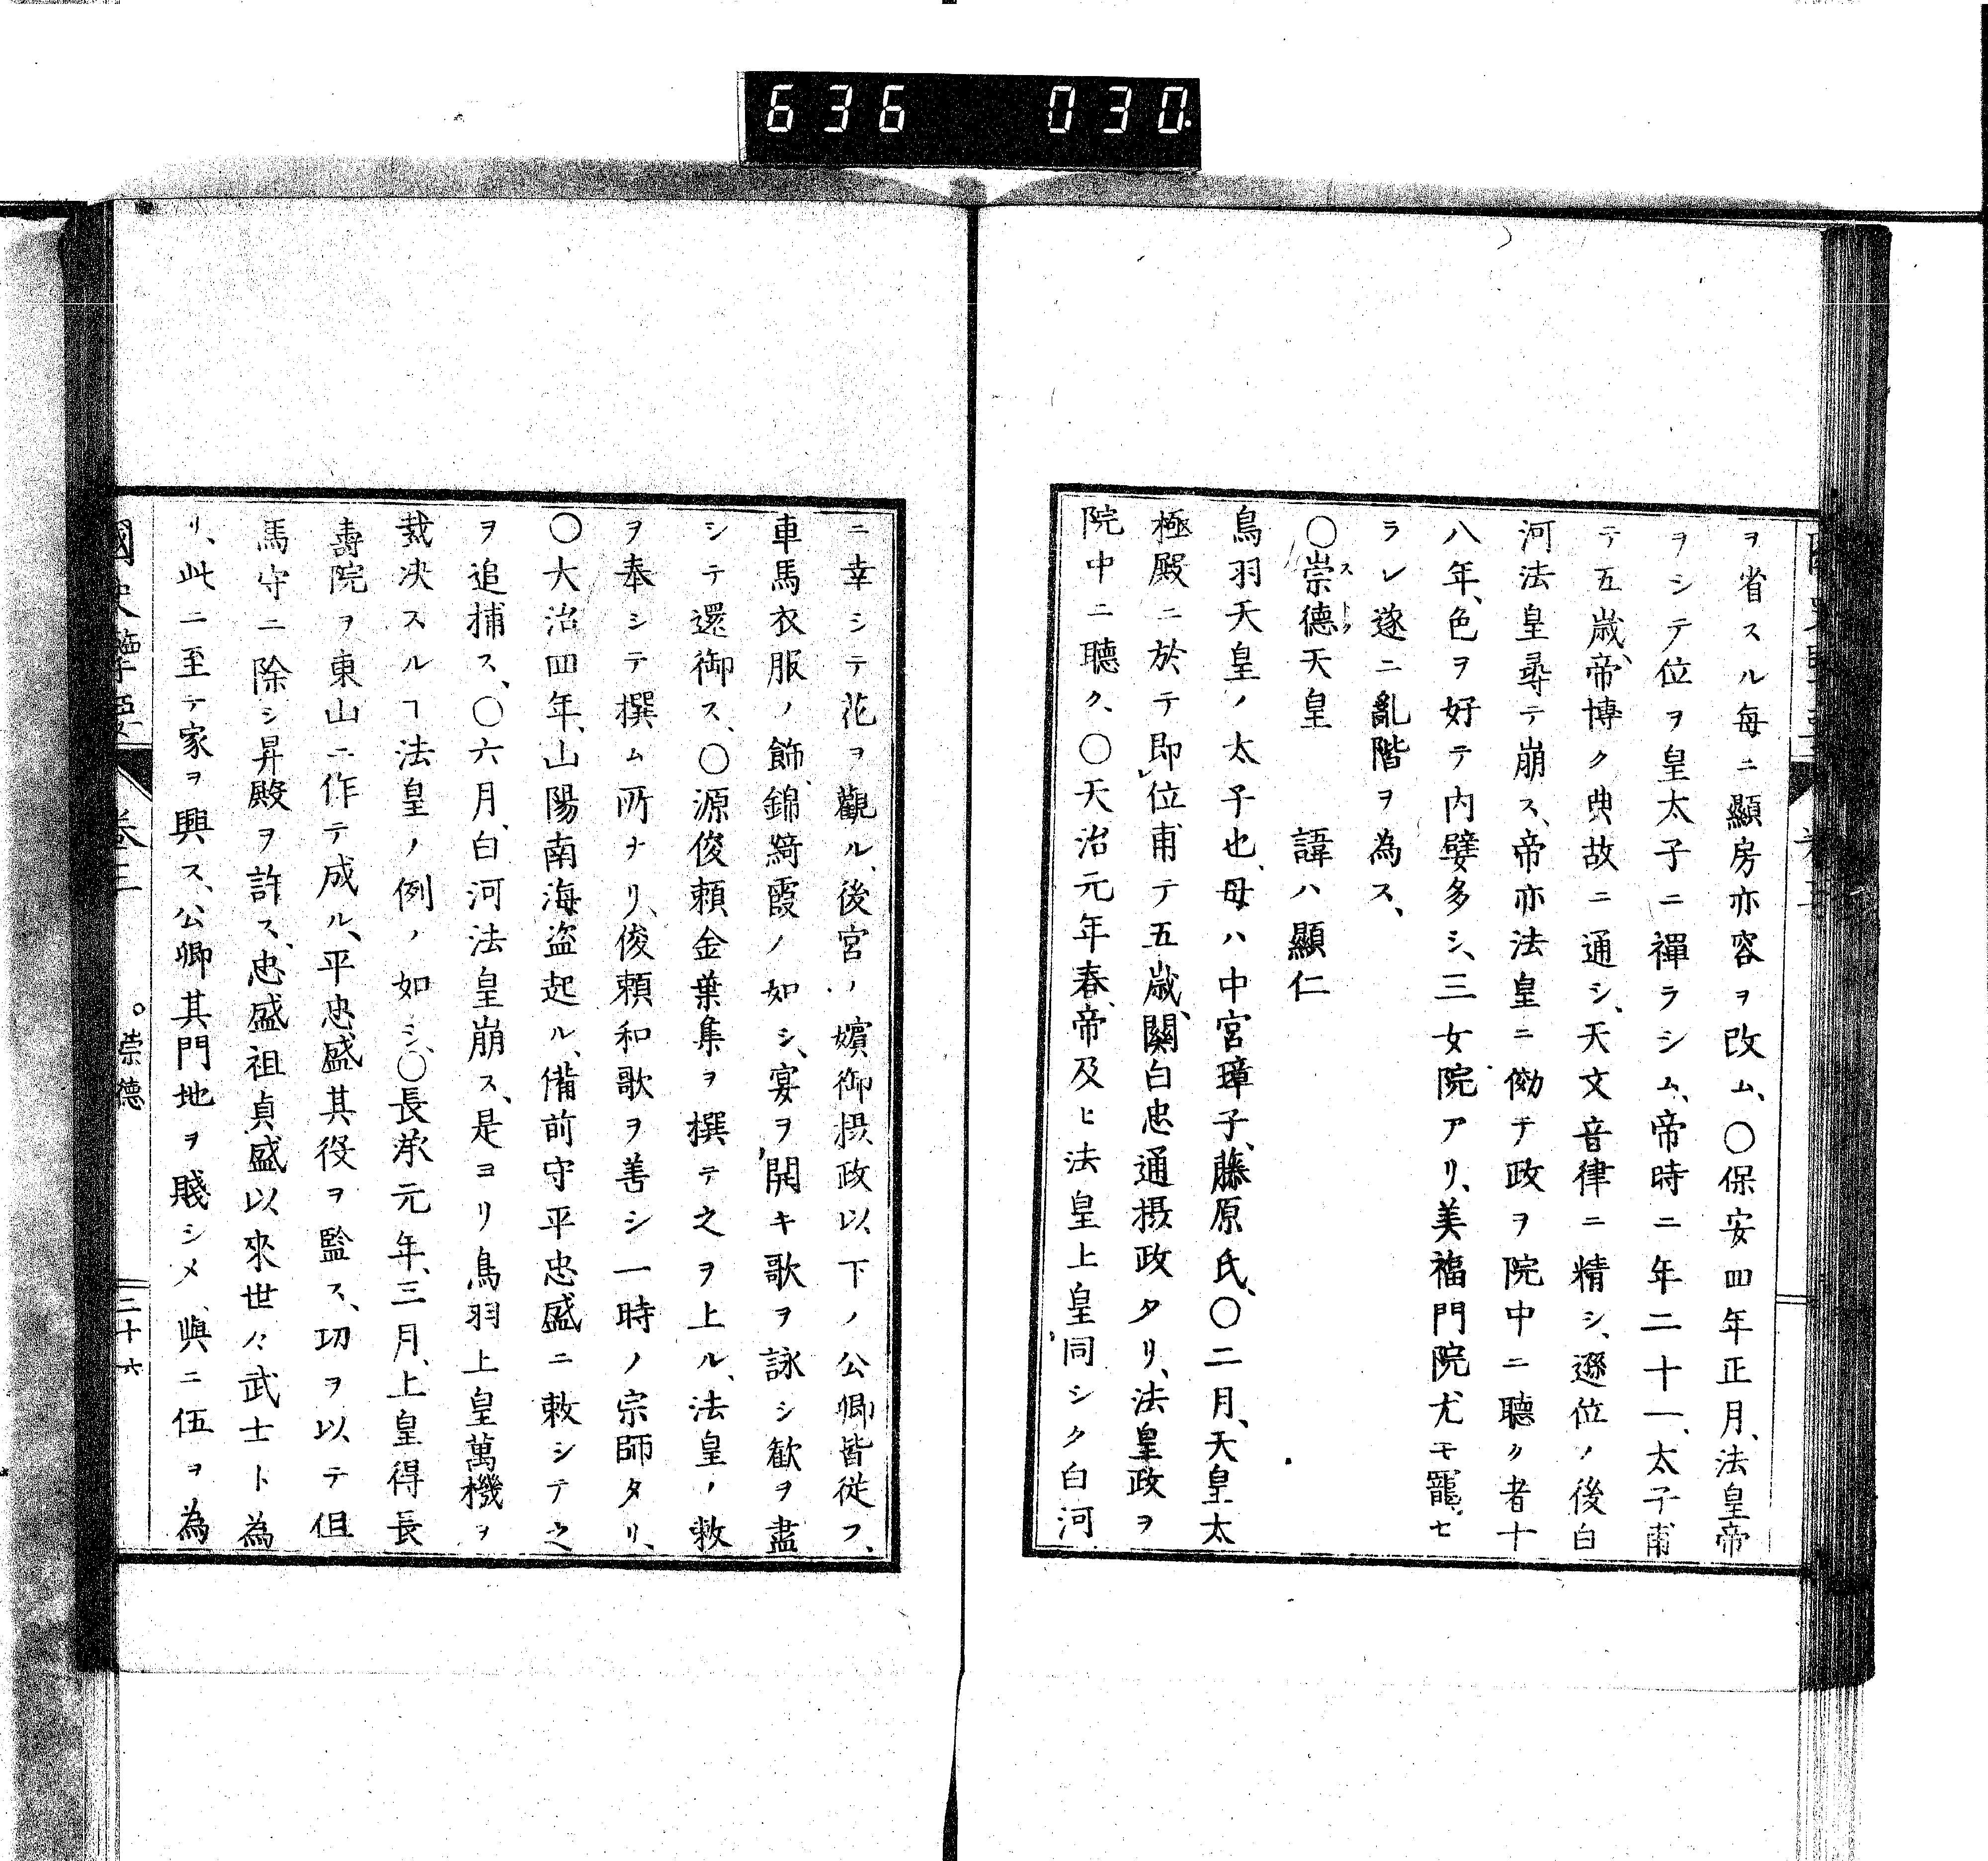 636 030
ヲ省スル毎ニ顯房亦容ヲ改ム、〇保安四年正月、法皇帝
ヲシテ位ヲ皇太子ニ禪ラシム、帝時ニ年二十一、太子甫
テ五歳、帝博ク典故ニ通シ、天文音律ニ精シ、遜位ノ後白
河法皇尋テ崩ス、帝亦法皇ニ傚テ政ヲ院中ニ聽ク者十
八年、色ヲ好テ内嬖多シ、三女院アリ、美福門院尤モ寵セ
ラレ遂ニ亂階ヲ為ス、
〇崇德天皇 諱ハ顯仁
ストク
鳥羽天皇ノ太子也、母ハ中宮璋子、藤原氏、〇二月、天皇太
極殿ニ於テ即位、甫テ五歳、關白忠通摂政タリ、法皇政ヲ
院中ニ聽ク、〇天治元年春、帝及ヒ法皇上皇同シク白河
ニ幸シテ花ヲ觀ル、後宮ノ嬪御摂政以下ノ公卿皆從フ、
車馬衣服ノ飾、錦綺霞ノ如シ、宴ヲ開キ歌ヲ詠シ歡ヲ盡
シテ還御ス、〇源俊頼金葉集ヲ撰テ之ヲ上ル、法皇ノ敕
ヲ奉シテ撰ム所ナリ、俊頼和歌ヲ善シ一時ノ宗師タリ、
〇大治四年、山陽南海盗起ル、備前守平忠盛ニ敕シテ之
ヲ追捕ス、〇六月、白河法皇崩ス、是ヨリ鳥羽上皇萬機ヲ
裁决スルヿ法皇ノ例ノ如シ、〇長承元年、三月、上皇得長
壽院ヲ東山ニ作テ成ル、平忠盛其役ヲ監ス、功ヲ以テ但
馬守ニ除シ昇殿ヲ許ス、忠盛祖貞盛以來世々武士ト為
リ、此ニ至テ家ヲ興ス、公卿其門地ヲ賤シメ、與ニ伍ヲ為
國史擥要 卷三 〇崇德 三十六